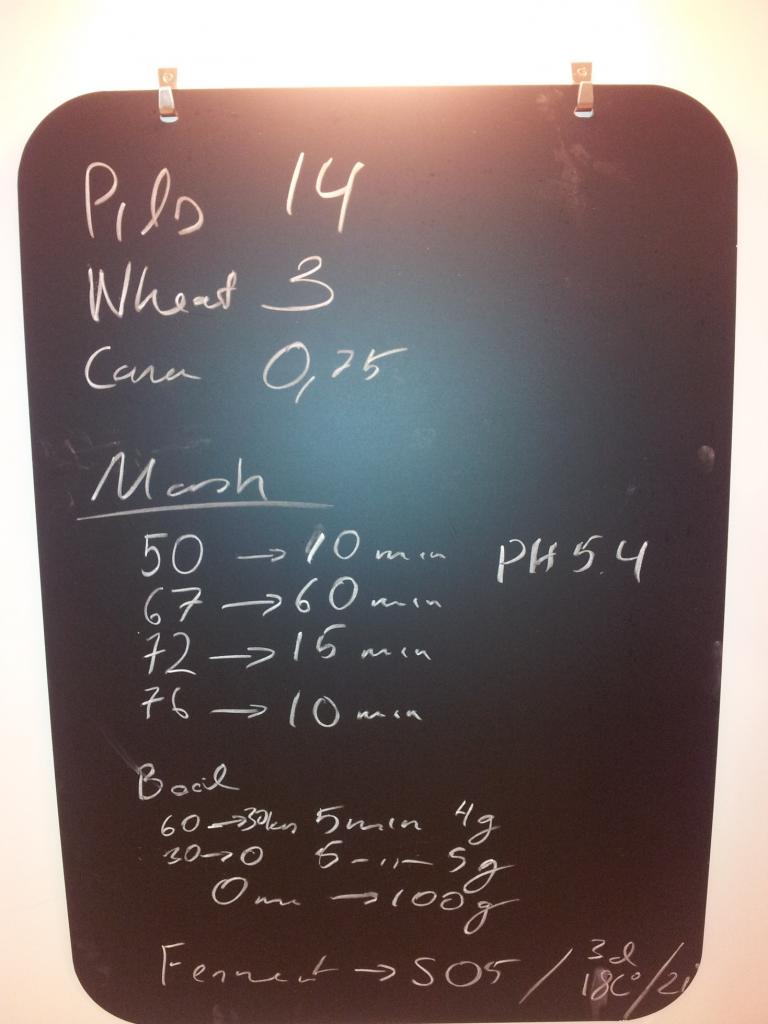 Pils 14
Wheat 3
Cara 0,75
Mash
50 → 10 min PH 5.4
67 → 60 min
72 → 15 min
76 → 10 min
Boil
60 → 30 5min 4g
30 → 0 5 -"- 5g
0 → 100g
Ferment → S05 / 3d
18C° / 21